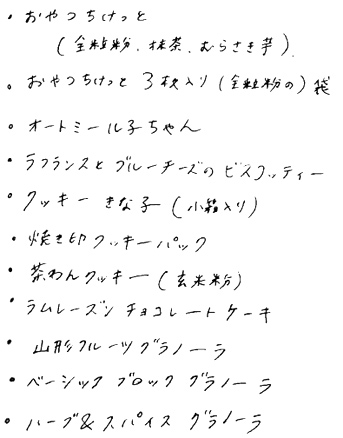 ・おやつちけっと
(全粒粉、抹茶、むらさき芋)
・おやつちけっと 3枚入り(全粒粉の)袋
・オートミール子ちゃん
・ラフランスとブルーチーズのビスコッティー
・クッキー きな子(小箱入り)
・焼き印クッキーパック
・茶わんクッキー(玄米粉)
・ラムレーズンチョコレートケーキ
・山形フルーツグラノーラ
・ベーシック ブロック グラノーラ
・ハーブ&スパイス グラノーラ